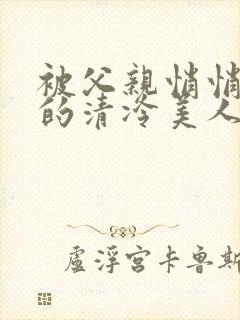 被父親悄悄
的清冷美人
盧浮宮卡魯斯